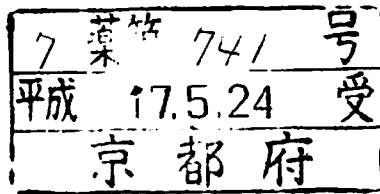 7 薬第 741 号
平成 17.5.24 受
京都府